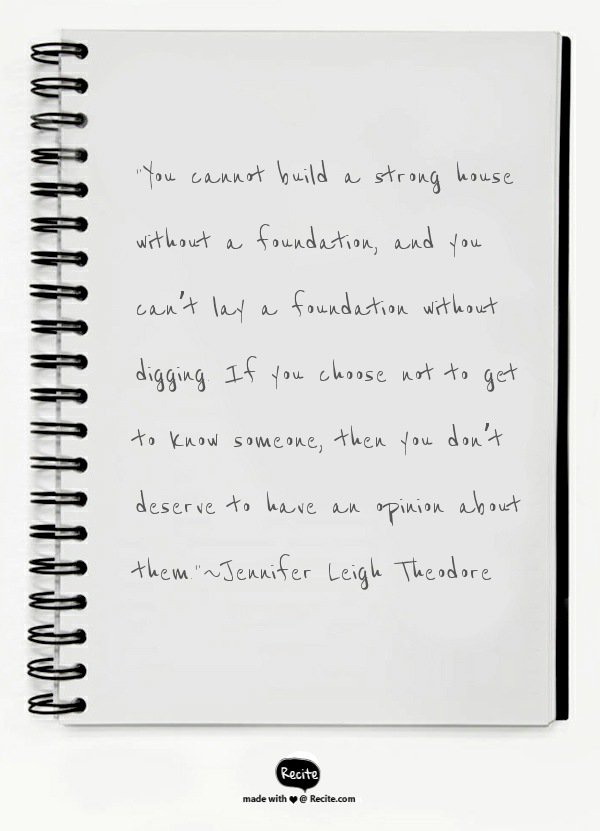 "You cannot build a strong house
without a foundation, and you
can't lay a foundation without
digging. If you choose not to get
to know someone, then you don't
deserve to have an opinion about
them."~Jennifer Leigh Theodore
Recite
made with ♥ @ Recite.com